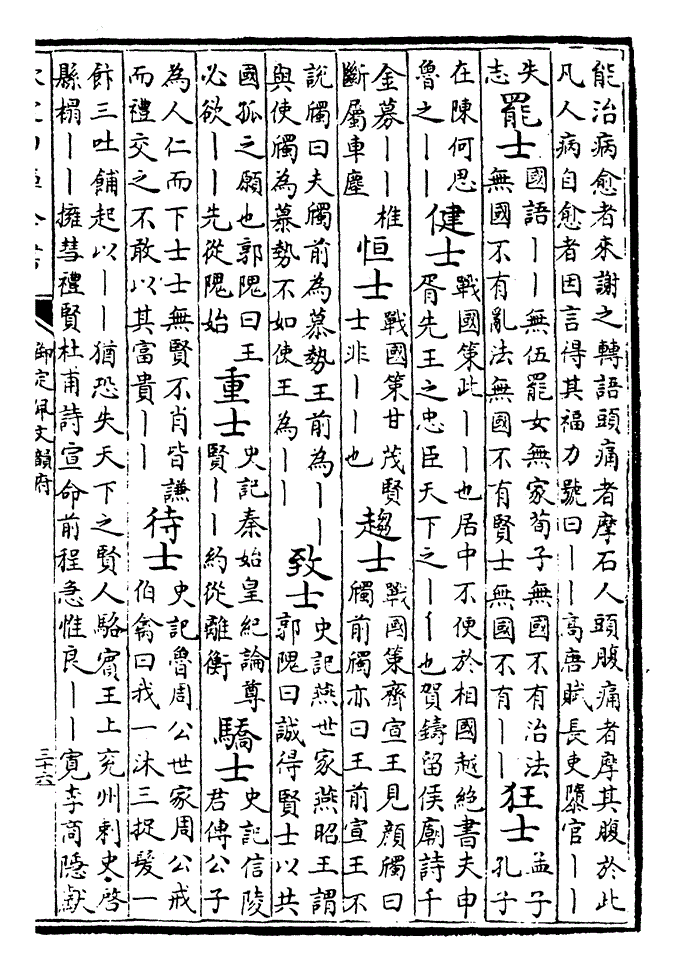 能治病愈者來謝之轉語頭痛者摩石人頭腹痛者摩其腹於此
凡人病自愈者因言得其福力號曰丨丨高唐賦長吏隳官丨丨
失
志
罷士
國語丨丨無伍罷女無家荀子無國不有治法
無國不有亂法無國不有賢士無國不有丨丨
狂士
孟子
孔子
在陳何思
魯之丨丨
健士
戰國策此丨丨也居中不便於相國越絕書夫申
胥先王之忠臣天下之丨丨也賀鑄留侯廟詩千
金募丨丨椎
斷屬車塵
恒士
戰國策甘茂賢
士非丨丨也
趨士
戰國策齊宣王見顔斶曰
斶前斶亦曰王前宣王不
説斶曰夫斶前為慕勢王前為丨丨
與使斶為慕勢不如使王為丨丨
致士
史記燕世家燕昭王謂
郭隗曰誠得賢士以共
國孤之願也郭隗曰王
必欲丨丨先從隗始
重士
史記秦始皇紀論尊
賢丨丨約從離衡
驕士
史記信陵
君傳公子
為人仁而下士士無賢不肖皆謙
而禮交之不敢以其富貴丨丨
待士
史記魯周公世家周公戒
伯禽曰我一沐三捉髮一
飰三吐餔起以丨丨猶恐失天下之賢人駱賓王上兖州刺史啓
縣榻丨丨擁彗禮賢杜甫詩宣命前程急惟良丨丨寛李商隱獻
御定佩文韻府
三十六